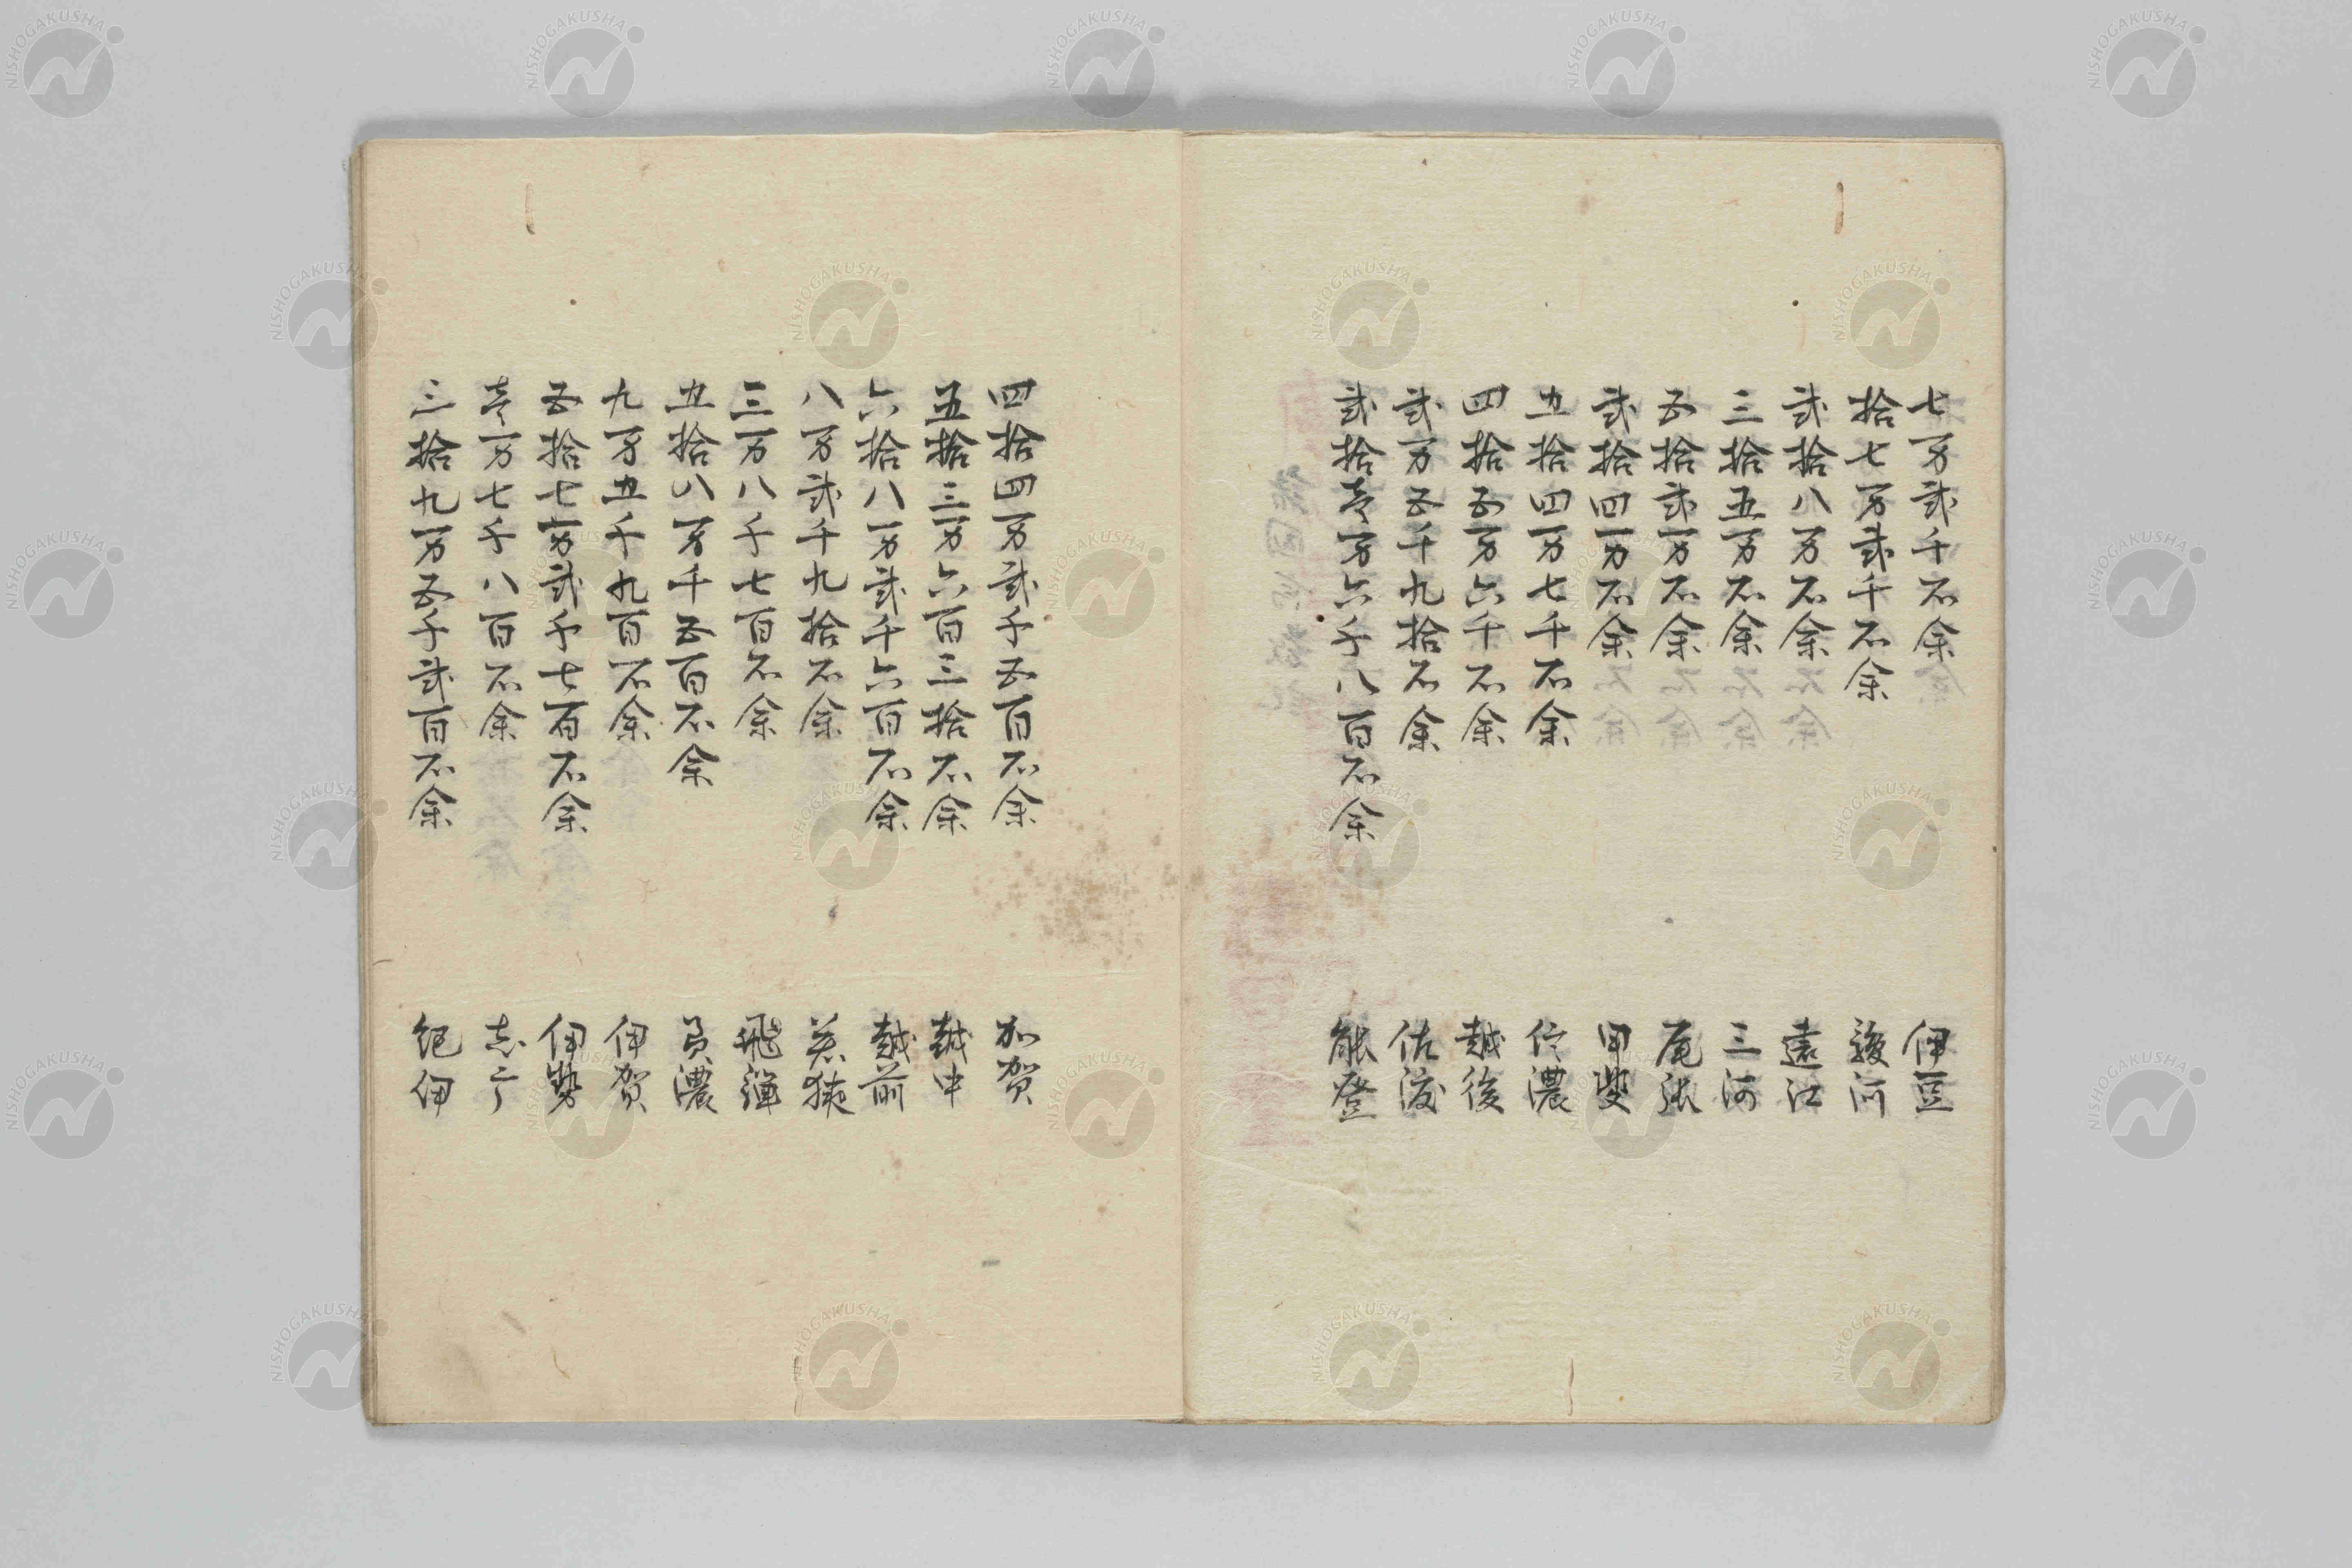 七万弐千石余 伊豆
拾七万弐千石余 駿河
弐拾八万石余 遠江
三拾五万石余 三河
五拾弐万石余 尾張
弐拾四万石余 甲斐
五拾四万七千石余 信濃
四拾五万六千石余 越後
弐万五千九拾石余 佐渡
弐拾壱万六千八百石余 能登
四拾四万弐千五百石余 加賀
五拾三万六百三拾石余 越中
六拾八万弐千六百石余 越前
八万弐千九拾石余 若狭
三万八千七百石余 飛彈
五拾八万千五百石余 美濃
九万五千九百石余 伊賀
五拾七万弐千七百石余 伊勢
壱万七千八百石余 志广
三拾九万五千弐百石余 紀伊
NISHOGAKUSHA